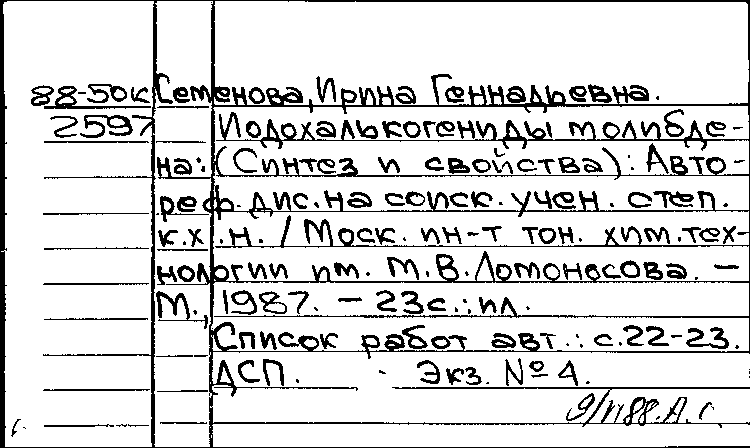 88-50к Семенова, Ирина Геннадьевна.
2597 Иодохалькогениды молибде-
на: (Синтез и свойства): Авто-
реф. дис. на соиск. учен. степ.
к.х.н. / Моск. ин-т тон. хим. тех-
нологии им. М.В. Ломоносова. —
М., 1987. — 23с.: ил.
Список работ авт.: с.22-23.
ДСП. Экз. № 4.